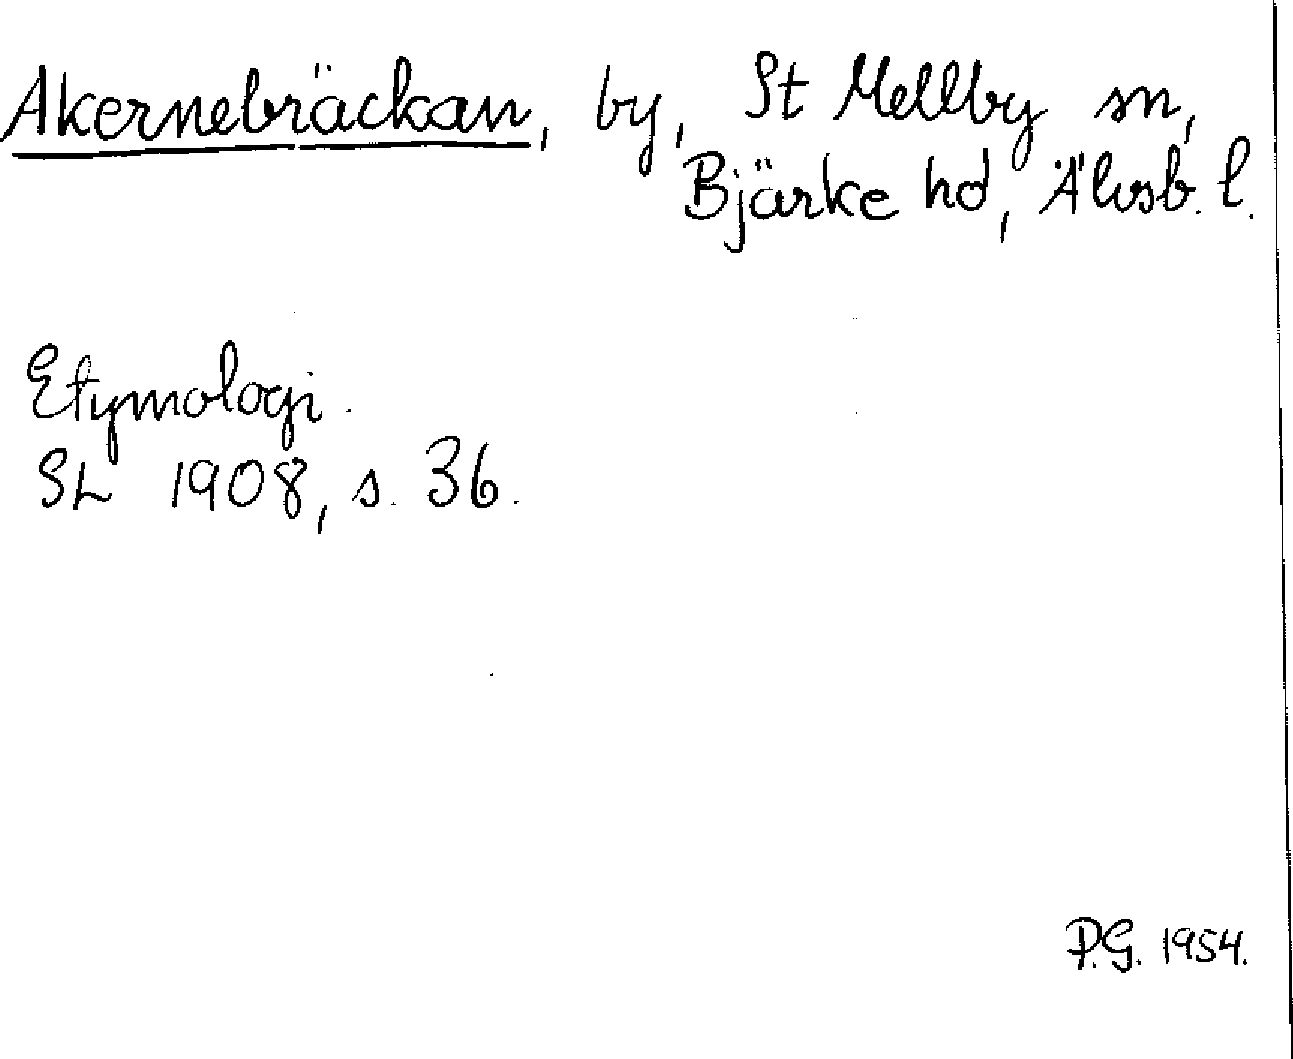 Akernebräckan, by, St Mellby sn,
Bjärke hd, Älvsb. l.
Etymologi.
SL 1908, s. 36.
P.G. 1954.